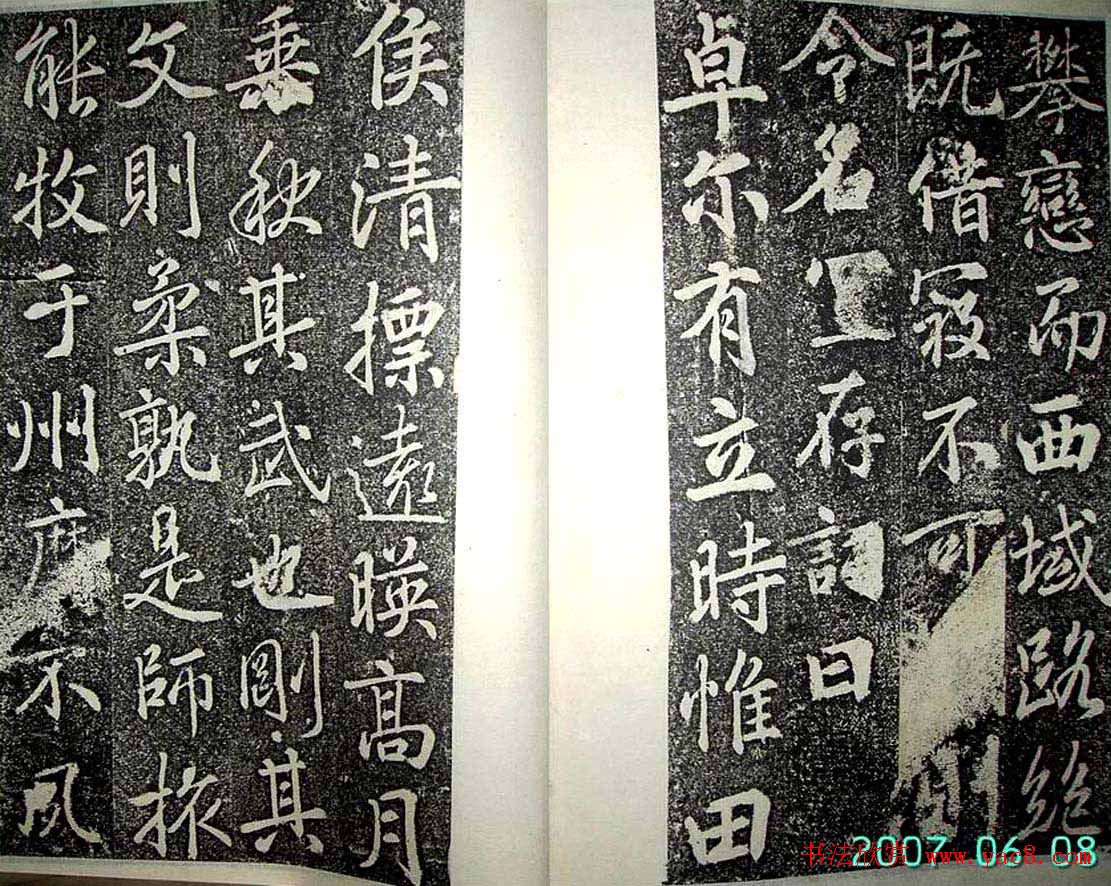 攀戀而西域路絶
既借寇不可 刪
令名宜存詞曰
卓尔有立時惟田
侯清摽遠暎高月
垂秋其武也剛其
文則柔孰是師旅
能牧于州麻不風
2007.06.08
书法欣赏 www.yac8.com